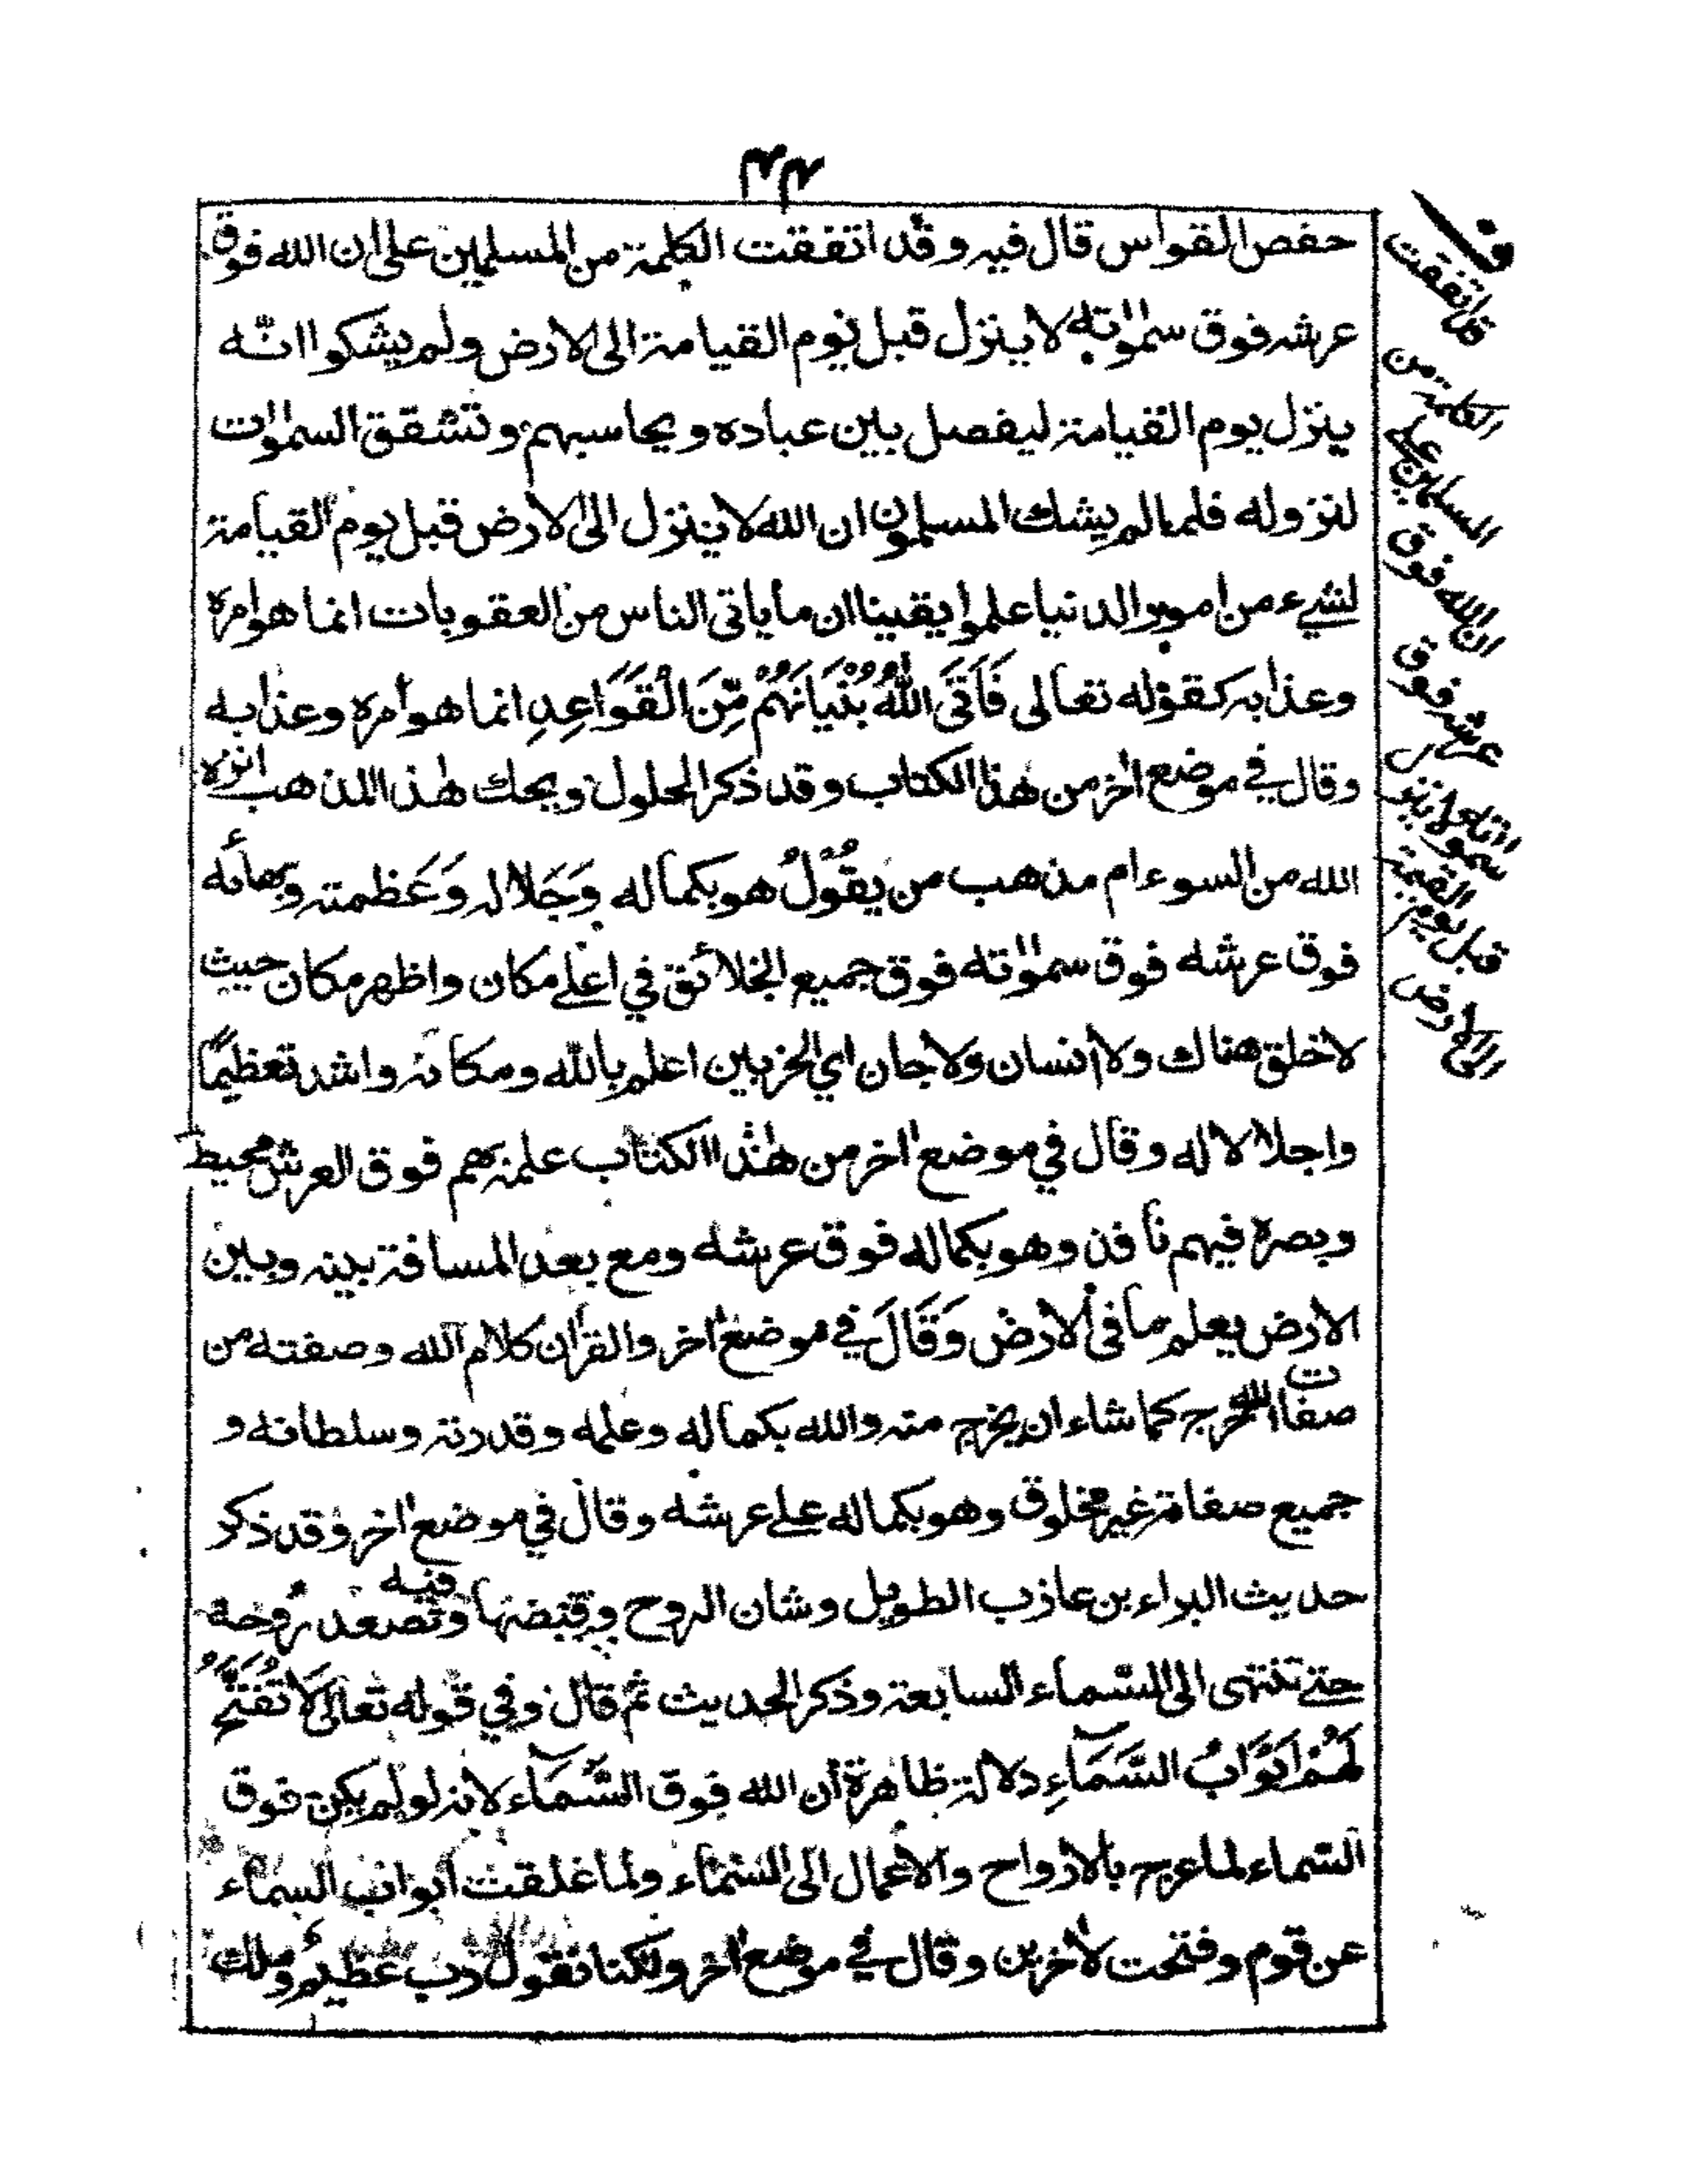 حفص القواس قال فيه وقد اتفقت الكلمة من المسلمين على ان الله فوق
عرشه فوق سمٰوٰته لا ينزل قبل يوم القيامة الى الارض ولم يشكوا انّه
ينزل يوم القيامة ليفصل بين عباده ويحاسبهم وتشقق السمٰوٰت
لنزوله فلما لم يشك المسلمون ان الله لا ينزل الى الارض قبل يوم القيامة
لشيء من امور الدنيا علموا يقينا ان ما ياتى الناس من العقوبات انما هو امره
وعذابه كقوله تعالى فَاَتَى اللّٰهُ بُنْيَانَهُمْ مِّنَ الْقَوَاعِدِ انما هو امره وعذابه
وقال في موضع اٰخر من هٰذا الكتاب وقد ذكر الحلول ويحك هٰذا المذهب انزه
الله من السوء ام مذهب من يَقُوْلُ هو بكماله وَجَلاله وَعَظمته وبهائه
فوق عرشه فوق سمٰوٰته فوق جميع الخلائق في اعلے مكان واظهر مكان حيث
لا خلق هناك ولا انسان ولا جان اي الحزبين اعلم بالله ومكانه واشد تعظيمًا
واجلالا له وقال في موضع اٰخر من هٰذا الكتاب علمه بهم فوق العرش محيط
وبصره فيهم نافذ وهو بكماله فوق عرشه ومع بعد المسافة بينه وبين
الارض يعلم ما فى الارض وَقَالَ في موضع اٰخر والقراٰن كلام الله وصفته من
صفات الله خرج كما شاء ان يخرج منه والله بكماله وعلمه وقدرته وسلطانه و
جميع صفاته غير مخلوق وهو بكماله علے عرشه وقال في موضع اٰخر وقد ذكر
حديث البراء بن عازب الطويل وشان الروح وقبضها وفيه وتصعد روحه
حتے تنتهى الى السّماء السابعة وذكر الحديث ثم قال وفي قوله تعالى لَا تُفَتَّحُ
لَهُمْ اَبْوَابُ السَّمَآءِ دلالة ظاهرة ان الله فوق السَّمَآء لانه لو لم يكن فوق
السّماء لما عرج بالارواح والاعمال الى السّماء ولما غلقت ابواب السماء
عن قوم وفتحت لاٰخرين وقال في موضع اٰخر ولكنا نقول رب عظيم وملك
قد اتفقت
الكلمة من
المسلمين على
ان الله فوق
عرشه فوق
سمٰوٰته
قبل يوم القيمة
الى الارض